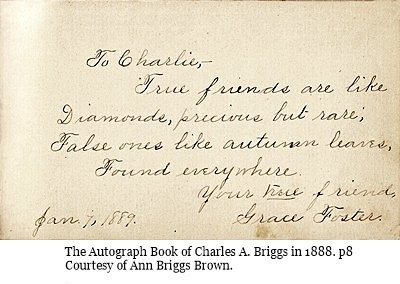 To Charlie,-
True friends are like
Diamonds, precious but rare;
False ones like autumn leaves,
Found everywhere.
Your true friend,
Jan. 7, 1889. Grace Foster.
The Autograph Book of Charles A. Briggs in 1888. p8
Courtesy of Ann Briggs Brown.